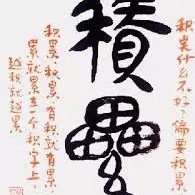 积点什么不好？偏要积累
積纍
积累、积累、有积就有累，
累就累在一个积字上，
越积就越累